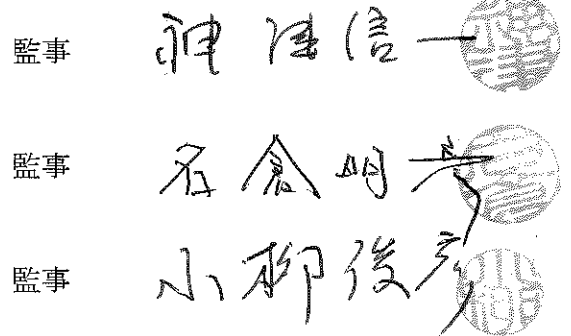 監事 神津信一
監事 石倉明
監事 小柳俊彦